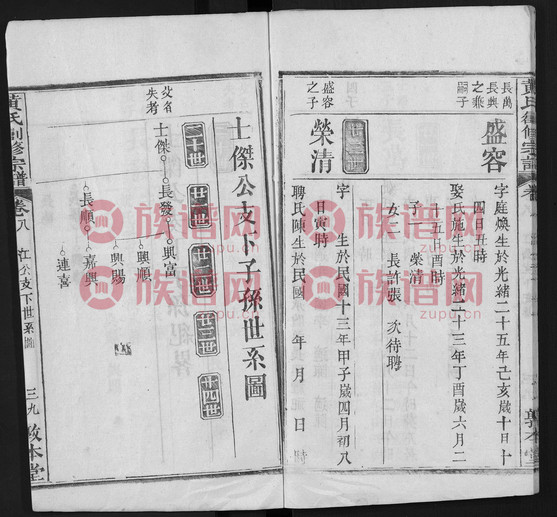 長萬
長興
之兼
嗣子
盛容
字庭煥生於光緒二十五年己亥歲十日十
四日丑時
娶氏施生於光緒二十三年丁酉歲六月二
十五日酉時
子一 榮清
女二 長許張 次待聘
盛容
之子
榮清
字 生於民國十三年甲子歲四月初八
日寅時
聘氏陳生於民國 年 月 日 時
敦本堂
士傑公支下子孫世系圖
二十世
廿一世
廿二世
廿三世
廿四世
父名
失考
士傑
長發
興富
興順
興賜
長順
嘉興
連喜
黃氏創修宗譜
卷八
江公支下世系圖
三九
敦本堂
族谱网
族谱网
族谱网
族谱网